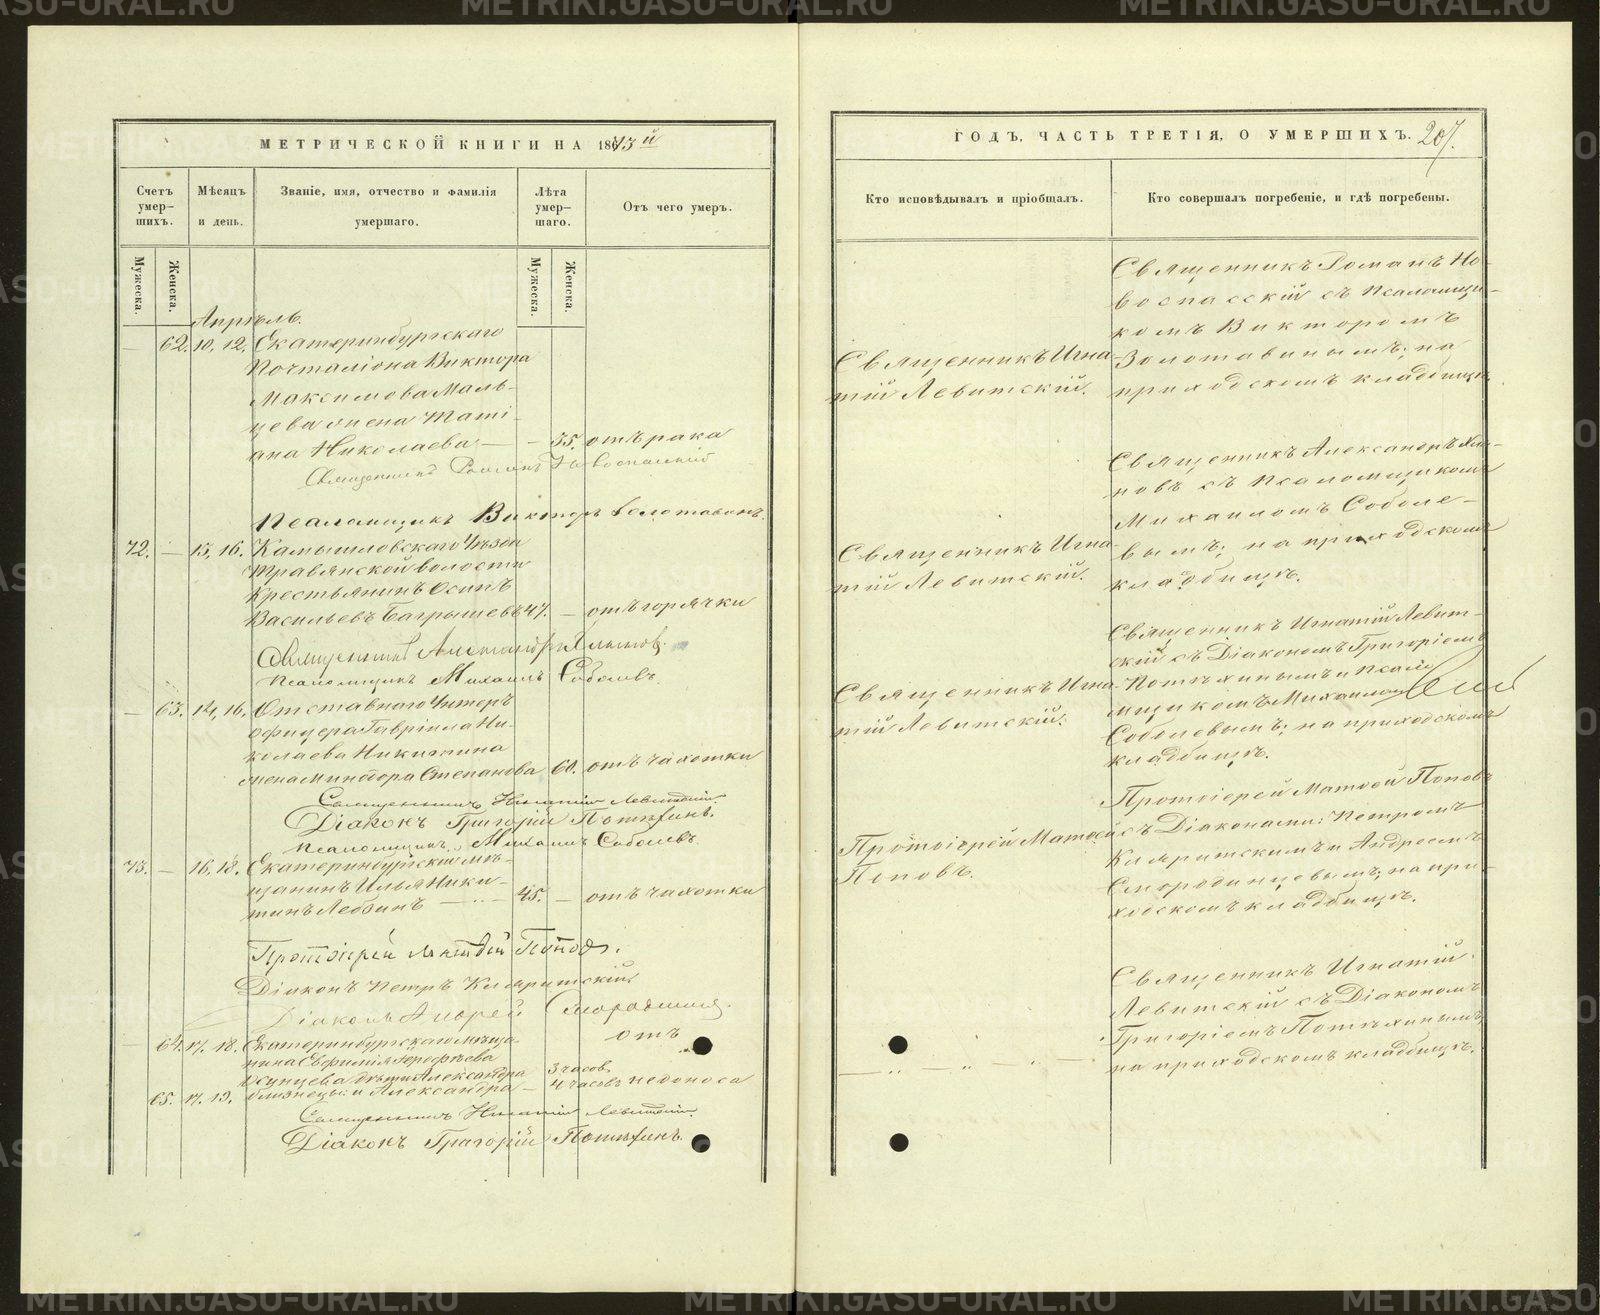 МЕТРИЧЕСКОЙ КНИГИ НА 1873й
Счетъ умер-шихъ.
Мѣсяцъ и день.
Званіе, имя, отчество и фамилія умершаго.
Лѣта умер-шаго.
Отъ чего умеръ.
Мужеска.
Женска.
Мужеска.
Женска.
Апрѣль.
62. 10, 12. Екатеринбургскаго
почталіона Виктора
Максимова Маль-
цева жена Тати-
ана Николаева — 35. отъ рака
Священникъ Романъ Новоспасскій
Псаломщикъ Викторъ Золотавинъ.
72. — 15, 16. Камышловскаго Уѣзда
Травянской волости
крестьянинъ Осипъ
Васильевъ Багрышевъ 47. — отъ горячки
Священникъ Александръ Хлыновъ.
Псаломщикъ Михаилъ Соболевъ.
— 63. 14, 16. Отставнаго Унтеръ
офицера Гавріила Ни-
колаева Никитина
жена Минодора Степанова 60. отъ чахотки
Священникъ Игнатій Левитскій.
Діаконъ Григорій Потѣхинъ.
Псаломщикъ Михаилъ Соболевъ.
73. — 16, 18. Екатеринбургскій мѣ-
щанинъ Илья Ники-
тинъ Лебзинъ — 45. — отъ чахотки
Протоіерей Матѳей Поповъ.
Діаконъ Петръ Кляритскій
Діаконъ Андрей Смородинцевъ.
— 64. 17, 18. Екатеринбургскаго мѣща-
нина Евфимія Ерофѣева
дѣти Александра 3 часов.
65. 17, 19. близнецы и Александра — 4 часовъ
отъ
недоноса
Священникъ Игнатій Левитскій.
Діаконъ Григорій Потѣхинъ.
ГОДЪ, ЧАСТЬ ТРЕТІЯ, О УМЕРШИХЪ. 207.
Кто исповѣдывалъ и пріобщалъ.
Кто совершалъ погребеніе, и гдѣ погребены.
Священникъ Игна-
тій Левитскій.
Священникъ Романъ Но-
воспасскій съ Псаломщи-
комъ Викторомъ
Золотавинымъ; на
приходскомъ кладбищѣ.
Священникъ Игна-
тій Левитскій.
Священникъ Александръ Хлы-
новъ съ Псаломщикомъ
Михаиломъ Соболе-
вымъ; на приходскомъ
кладбищѣ.
Священникъ Игна-
тій Левитскій.
Священникъ Игнатій Левит-
скій съ Діакономъ Григоріемъ
Потѣхинымъ и Псало-
мщикомъ Михаиломъ
Соболевымъ; на приходскомъ
кладбищѣ.
Протоіерей Матѳей
Поповъ.
Протоіерей Матѳей Поповъ
съ Діаконами: Петромъ
Кляритскимъ и Андреемъ
Смородинцевымъ; на при-
ходскомъ кладбищѣ.
Священникъ Игнатій
Левитскій съ Діакономъ
Григоріемъ Потѣхинымъ;
на приходскомъ кладбищѣ.
METRIKI.GASO-URAL.RU